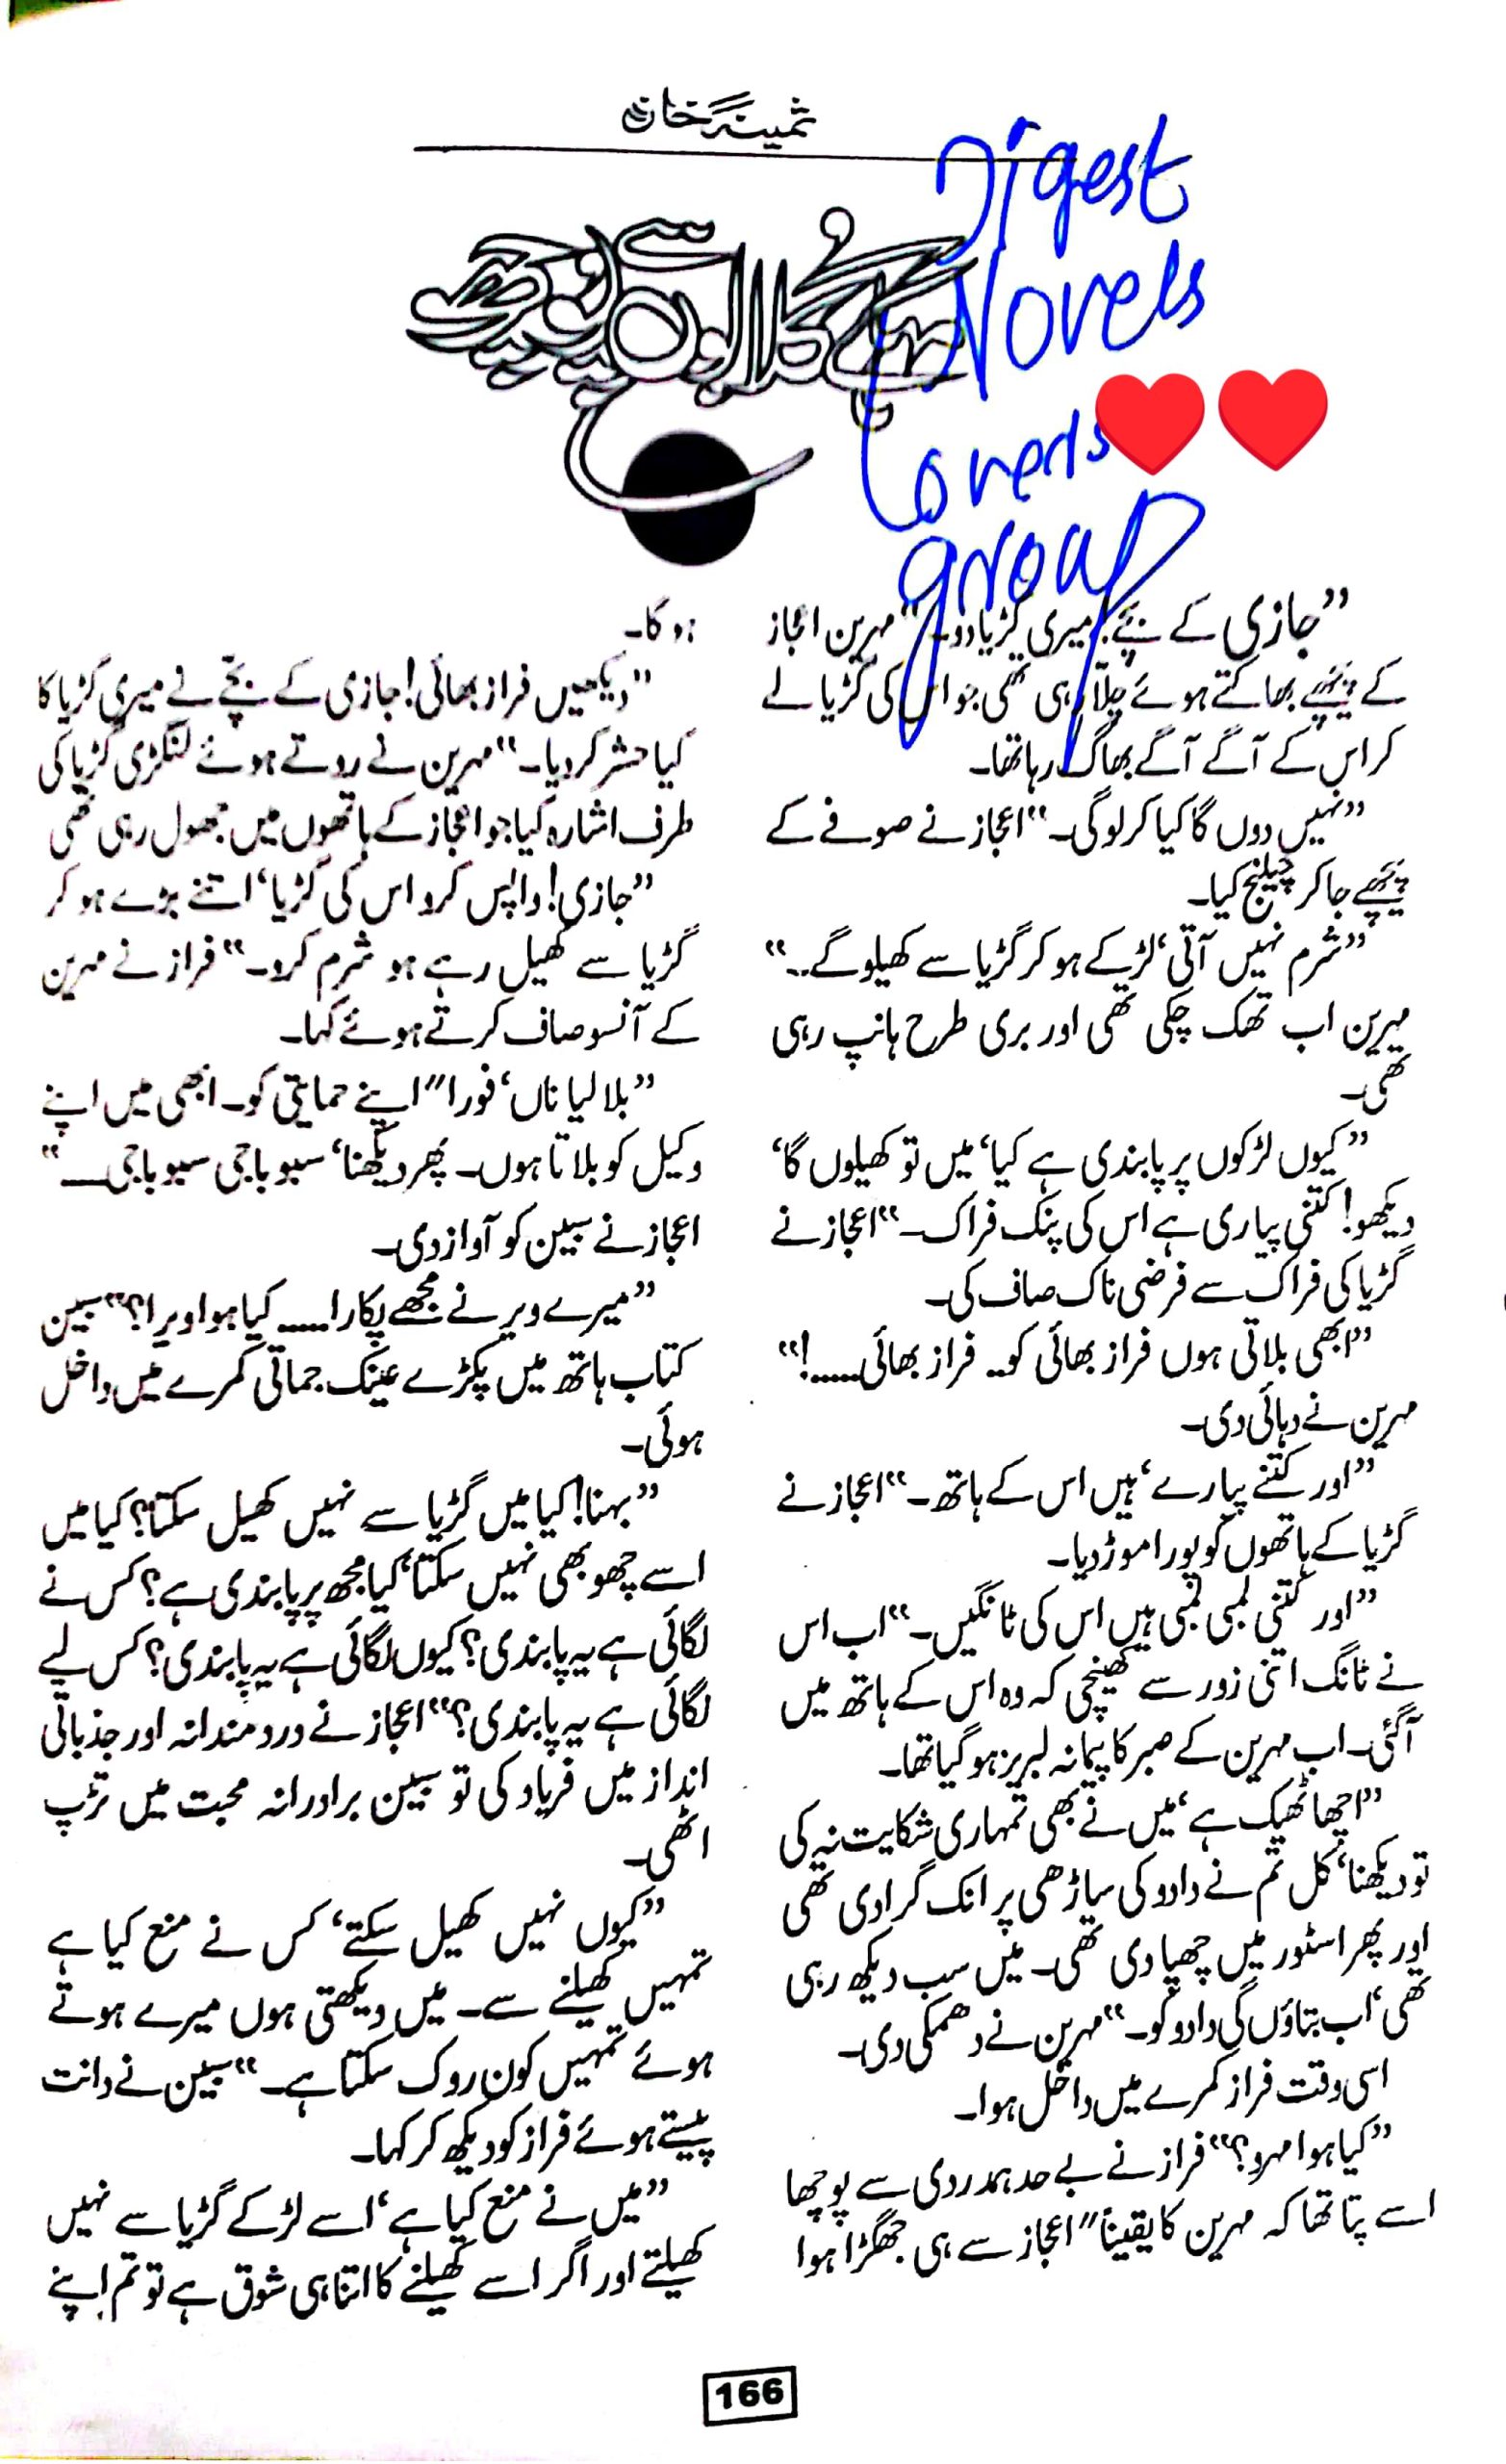 ثمینہ خان
Digest
Novels
Lovers
group
”جازی کے بچے! میری گڑیا دو۔“ مہرین اعجاز
کے پیچھے بھاگتے ہوئے چلا رہی تھی جو اس کی گڑیا لے
کر اس کے آگے آگے بھاگ رہا تھا۔
”نہیں دوں گا کیا کرلوگی۔“ اعجاز نے صوفے کے
پیچھے جاکر چیلنج کیا۔
”شرم نہیں آتی‘ لڑکے ہوکر گڑیا سے کھیلوگے۔۔“
مہرین اب تھک چکی تھی اور بری طرح ہانپ رہی
تھی۔
”کیوں لڑکوں پر پابندی ہے کیا‘ میں تو کھیلوں گا‘
دیکھو! کتنی پیاری ہے اس کی پنک فراک۔“ اعجاز نے
گڑیا کی فراک سے فرضی ناک صاف کی۔
”ابھی بلاتی ہوں فراز بھائی کو۔۔ فراز بھائی۔۔۔۔۔!“
مہرین نے دہائی دی۔
”اور کتنے پیارے‘ ہیں اس کے ہاتھ۔“ اعجاز نے
گڑیا کے ہاتھوں کو پورا موڑ دیا۔
”اور کتنی لمبی لمبی ہیں اس کی ٹانگیں۔“ اب اس
نے ٹانگ اتنی زور سے کھینچی کہ وہ اس کے ہاتھ میں
آگئی۔ اب مہرین کے صبر کا پیمانہ لبریز ہوگیا تھا۔
”اچھا ٹھیک ہے‘ میں نے بھی تمہاری شکایت نہ کی
تو دیکھنا‘ کل تم نے دادو کی ساڑھی پر انک گرا دی تھی
اور پھر اسٹور میں چھپا دی تھی۔ میں سب دیکھ رہی
تھی‘ اب بتاؤں گی دادو کو۔“ مہرین نے دھمکی دی۔
اسی وقت فراز کمرے میں داخل ہوا۔
”کیا ہوا مہرو؟“ فراز نے بے حد ہمدردی سے پوچھا
اسے پتا تھا کہ مہرین کا یقیناً“ اعجاز سے ہی جھگڑا ہوا
ہوگا۔
”دیکھیں فراز بھائی! جازی کے بچے نے میری گڑیا کا
کیا حشر کردیا۔“ مہرین نے روتے ہوئے لنگڑی گڑیا کی
طرف اشارہ کیا جو اعجاز کے ہاتھوں میں جھول رہی تھی
”جازی! واپس کرو اس کی گڑیا‘ اتنے بڑے ہوکر
گڑیا سے کھیل رہے ہو شرم کرو۔“ فراز نے مہرین
کے آنسو صاف کرتے ہوئے کہا۔
”بلا لیا ناں‘ فورا“ اپنے حمایتی کو۔ ابھی میں اپنے
وکیل کو بلاتا ہوں۔ پھر دیکھنا‘ سبو باجی سبو باجی۔۔۔“
اعجاز نے سبین کو آواز دی۔
”میرے ویر نے مجھے پکارا۔۔۔۔۔ کیا ہوا ویرا؟“ سبین
کتاب ہاتھ میں پکڑے عینک جماتی کمرے میں داخل
ہوئی۔
”بہنا! کیا میں گڑیا سے نہیں کھیل سکتا؟ کیا میں
اسے چھو بھی نہیں سکتا‘ کیا مجھ پر پابندی ہے؟ کس نے
لگائی ہے یہ پابندی؟ کیوں لگائی ہے یہ پابندی؟ کس لیے
لگائی ہے یہ پابندی؟“ اعجاز نے دردمندانہ اور جذباتی
انداز میں فریاد کی تو سبین برادرانہ محبت میں تڑپ
اٹھی۔
”کیوں نہیں کھیل سکتے‘ کس نے منع کیا ہے
تمہیں کھیلنے سے۔ میں دیکھتی ہوں میرے ہوتے
ہوئے تمہیں کون روک سکتا ہے۔“ سبین نے دانت
پیستے ہوئے فراز کو دیکھ کر کہا۔
”میں نے منع کیا ہے‘ اسے لڑکے گڑیا سے نہیں
کھیلتے اور اگر اسے کھیلنے کا اتنا ہی شوق ہے تو تم اپنے
166